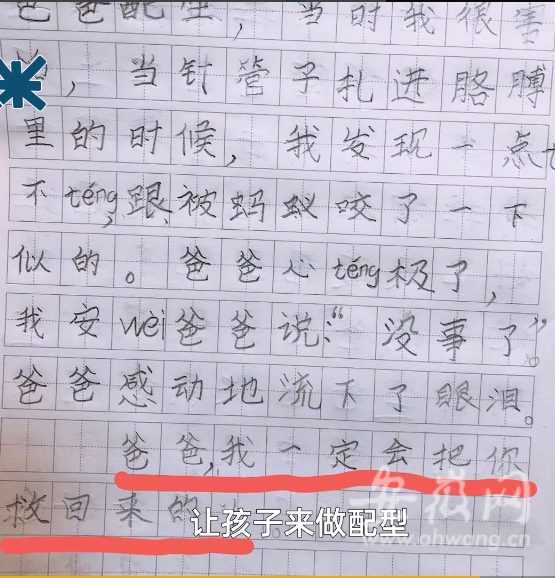 爸爸配型，当时我很害
怕，当针管子扎进胳膊
里的时候，我发现一点t
不téng，跟被蚂蚁咬了一下
似的。爸爸心téng极了，
我安wèi爸爸说：“没事了”
爸爸感动地流下了眼泪。
爸爸，我一定会把你
救回来的
让孩子来做配型
安徽网
www.ahwang.cn